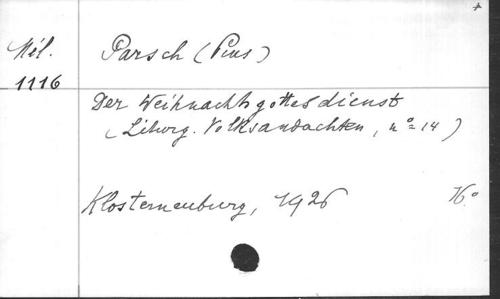 Mél. Parsch (Pius)
1116
Der Weihnachtsgottesdienst
(Liturg. Volksandachten, nº 14)
Klosterneuburg, 1926 16º